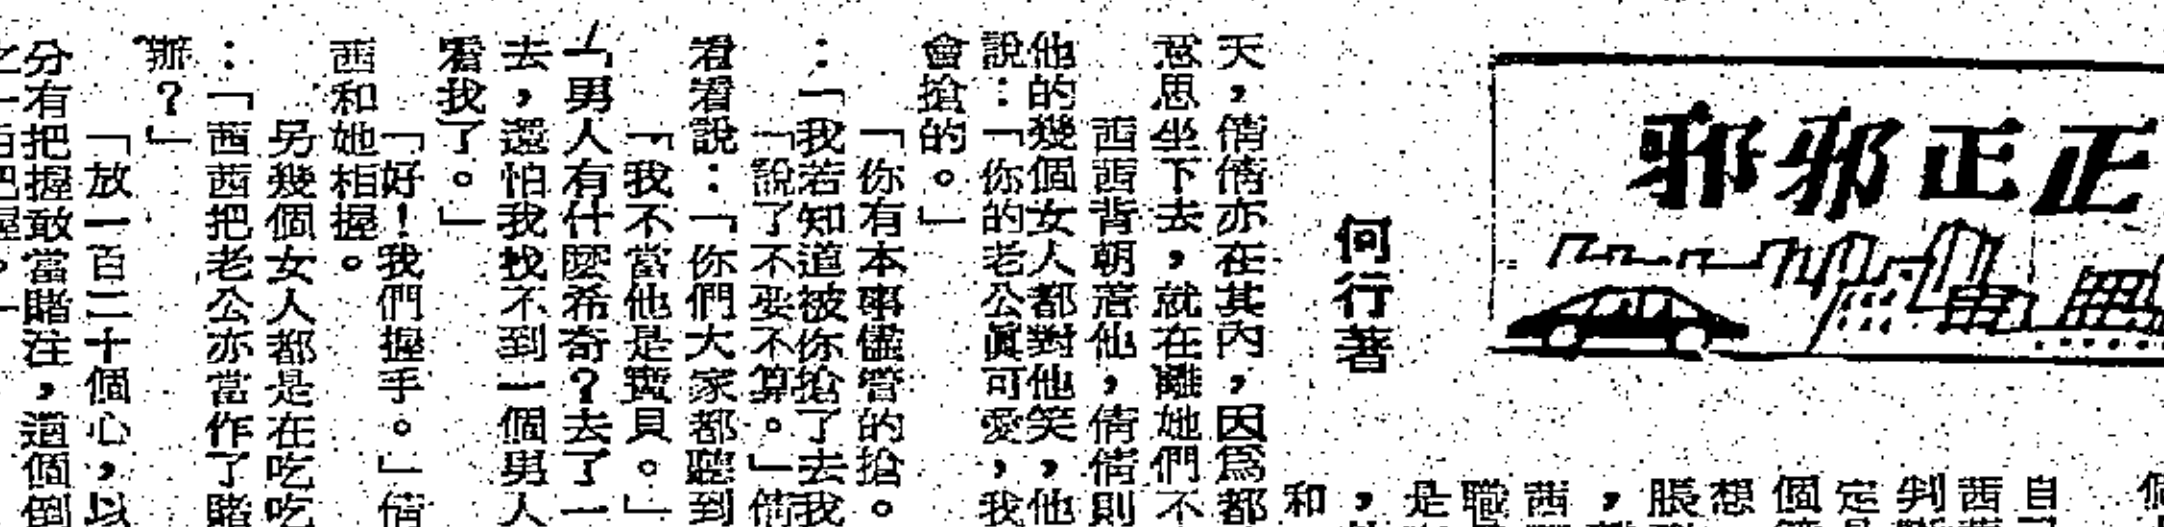 正正邪邪
何行著
自
茜
判
定
個
想
脹
，
茜
職
是
，
和
天，倩倩亦在其內，因為都
思坐下去，就在離她們不
茜茜背朝著他，倩倩則
他的幾個女人都對他笑，他
說：「你的老公眞可愛，我
會搶的。」
「你有本事儘管的搶。
：「我若知道被你搶了去我
「說了不要不算。」倩
看看說：「你們大家都聽到
「我不當他是寶貝。」
「男人有什麼希奇？去了一
去，還怕我找不到一個男人
看我了。」
「好！我們握手。」倩
茜和她相握。
另幾個女人都是在吃吃
：「茜茜把老公亦當作了賭
辦？」
「放一百二十個心，以
分有把握敢當賭注，這個倒